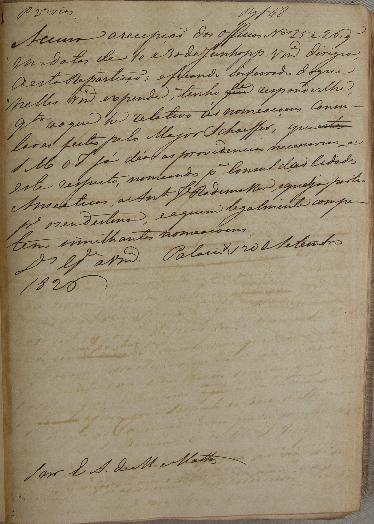 P. 2ª via
Accuso a recepção dos officios Nº 25 e 26 q
em datas de 10 e 30 de Junho pp Vmce dirigio
a esta Repartição; e ficando inteirado do que
nelles Vmce expende, tenho responder lhe,
qto ao que he relativo as nomeaçoens Consu-
lares feitas pelo Major Schaeffer, que
S M O I já deo as providencias necessarias a
este respeito, nomeando pª Consul das Cidades
Anseaticas, a Antº
pª o seu destino, e a quem legalmente compe-
tem similhantes nomeaçoens.
Ds Gde a Vmce. Palacio 20 de Setembro
1826
Snr E. A. de M. e Mattos